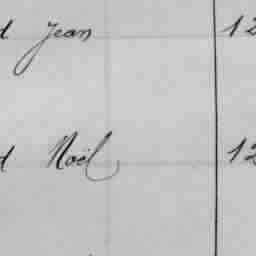 d Jean 12
d Noël 12